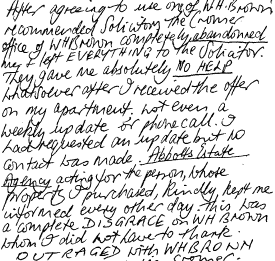 After agreeing to use one of WHBrown
recommended Solicitors the Cromer
office of WHBrown completely abandoned
me & left EVERYTHING to the Solicitor.
They gave me absolutely NO HELP
whatsoever after I received the offer
on my apartment, not even a
weekly update or phone call. I
had requested an update but no
contact was made. Abbotts Estate
Agency acting for the person, whose
property I purchased, kindly kept me
informed every other day. this was
a complete DISGRACE on WHBrown
whom I did not have to thank.
OUTRAGED with WHBROWN
Cromer.